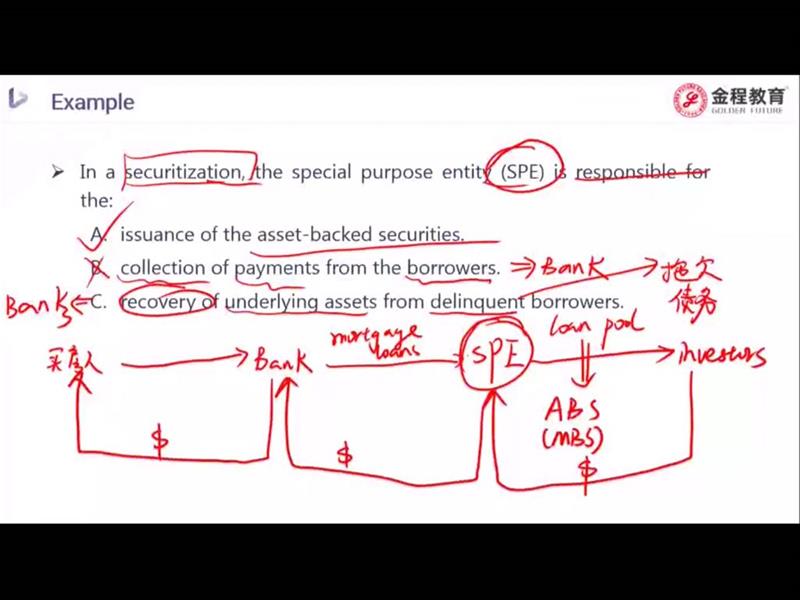 Example
金程教育
GOLDEN FUTURE
➢ In a securitization, the special purpose entity (SPE) is responsible for
the:
A. issuance of the asset-backed securities.
B. collection of payments from the borrowers. ⇒ Bank → 拖欠
Bank ⇐ C. recovery of underlying assets from delinquent borrowers. 债务
买房人 → Bank mortgage loans → SPE loan pool → investors
ABS
(MBS)
$ $ $